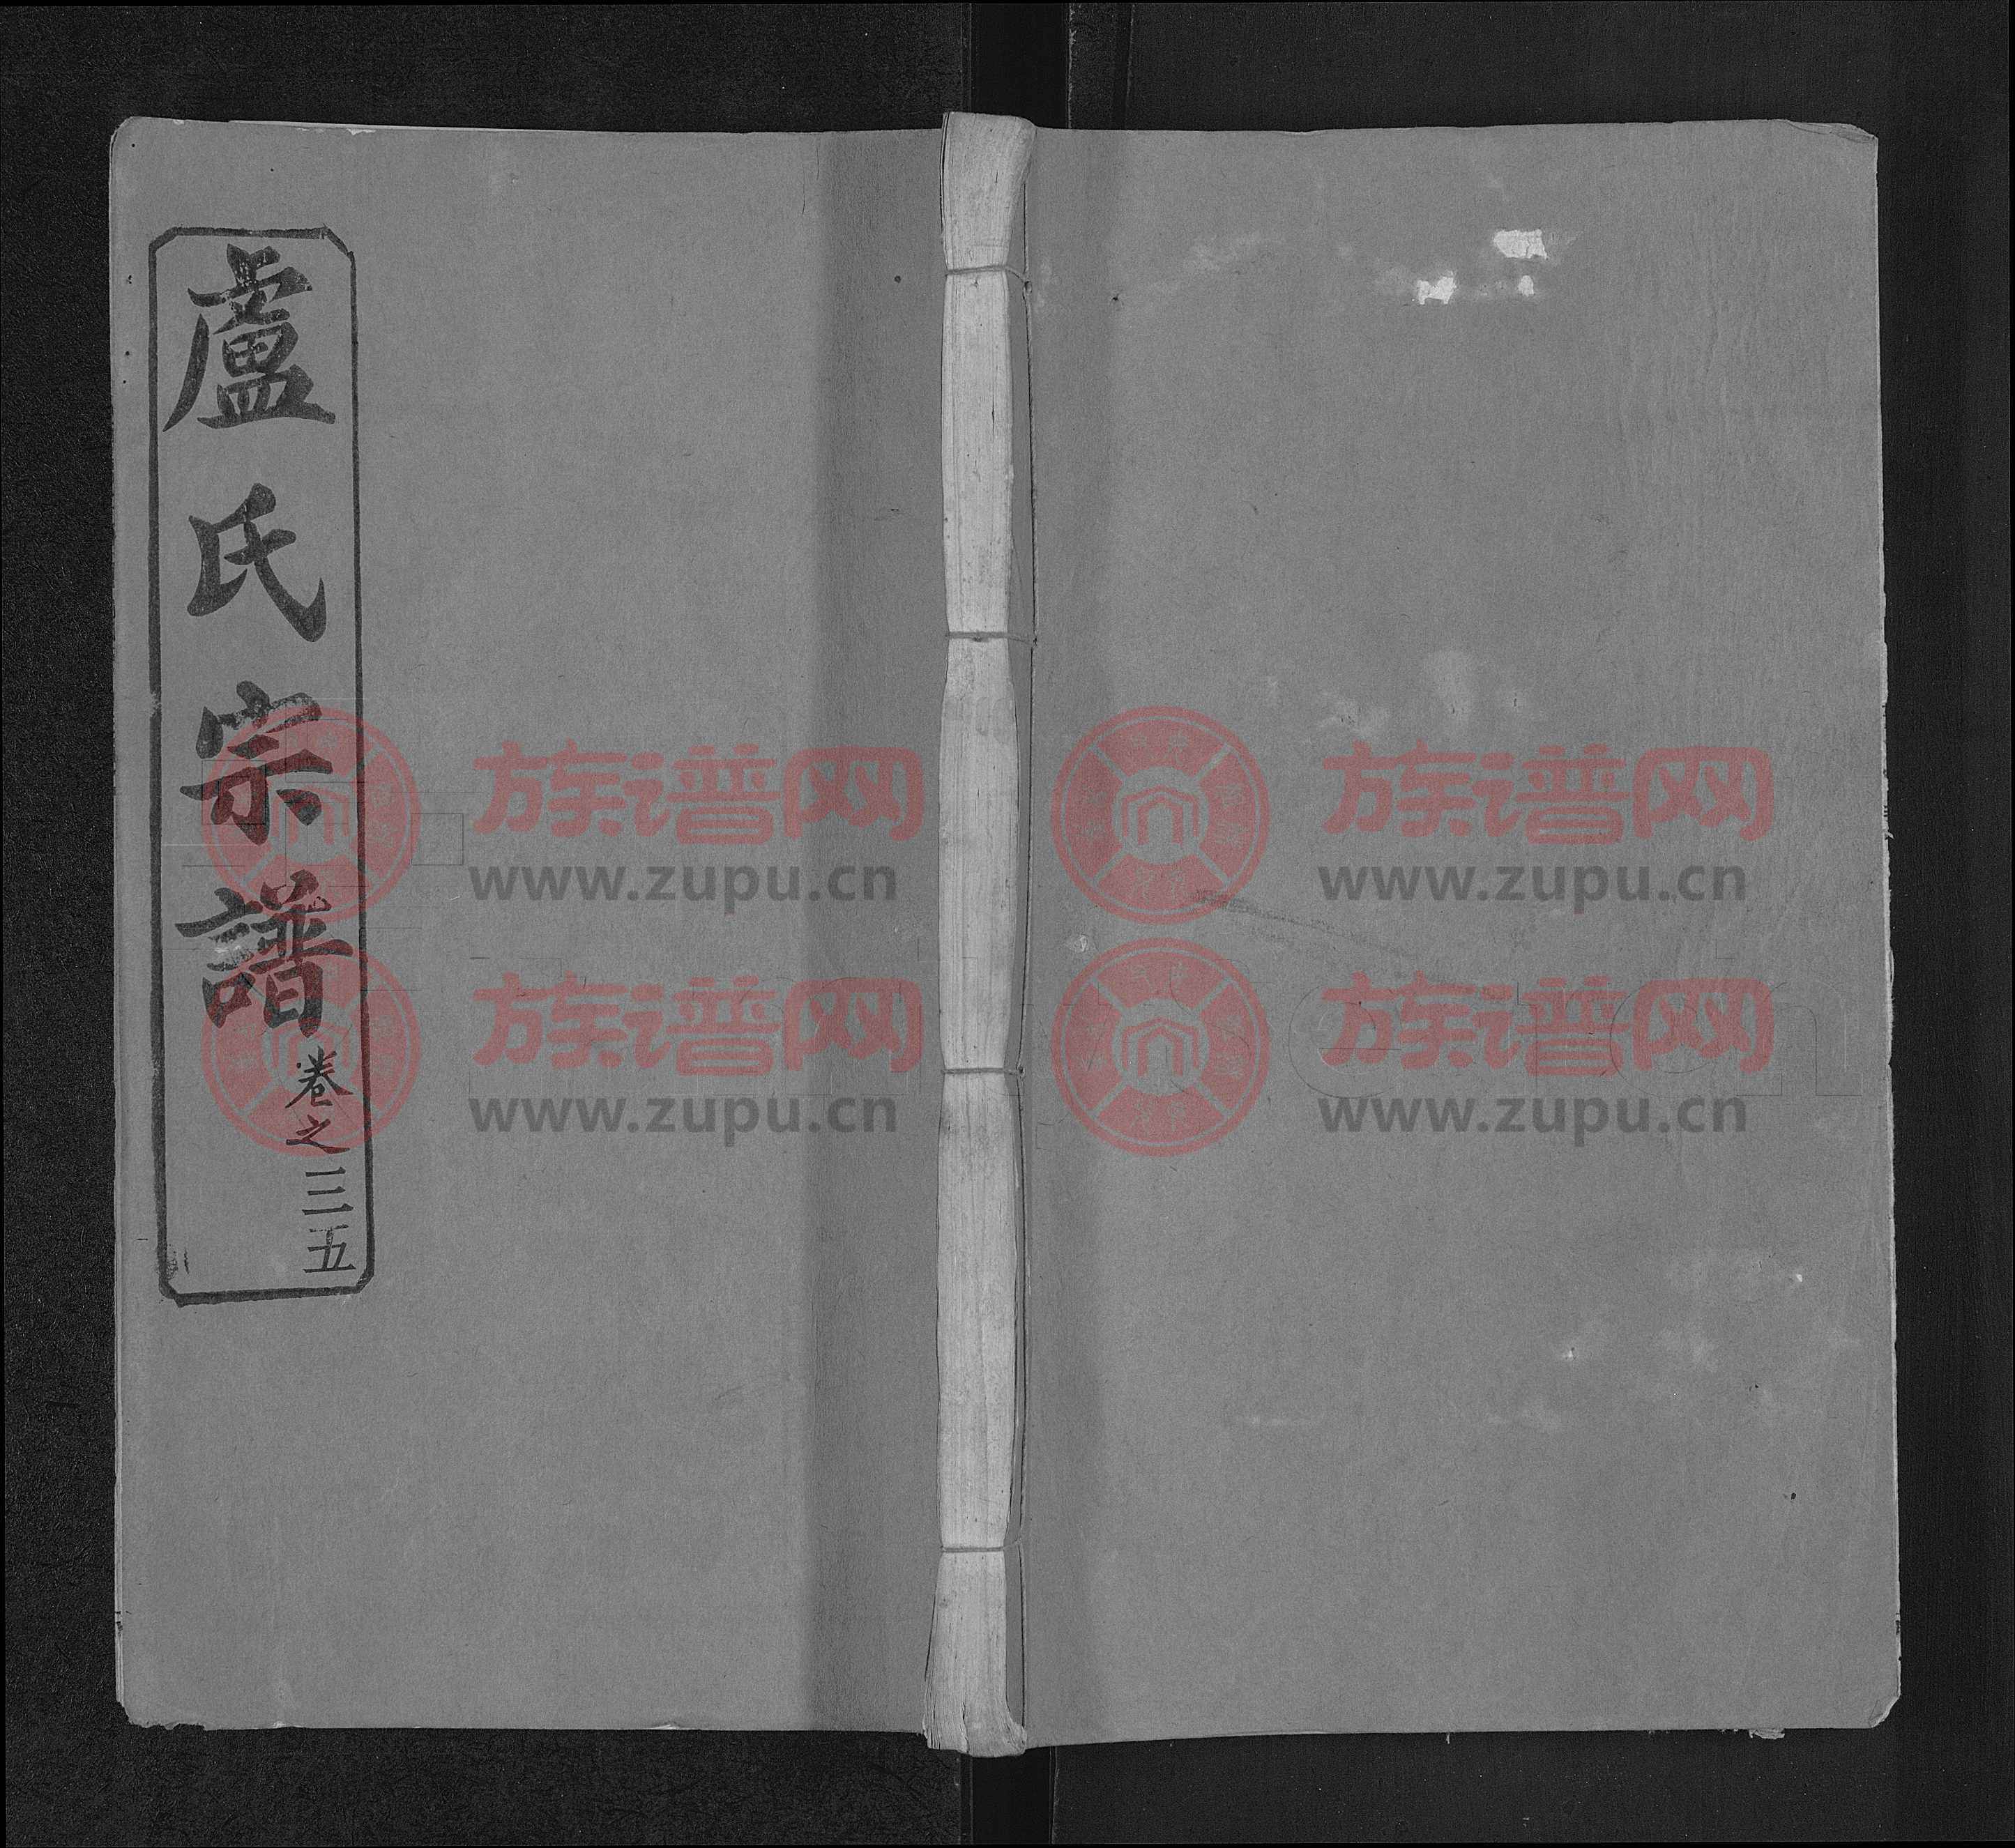 盧氏宗譜
卷之三五
族谱网
www.zupu.cn
族谱网
www.zupu.cn
族谱网
www.zupu.cn
族谱网
www.zupu.cn